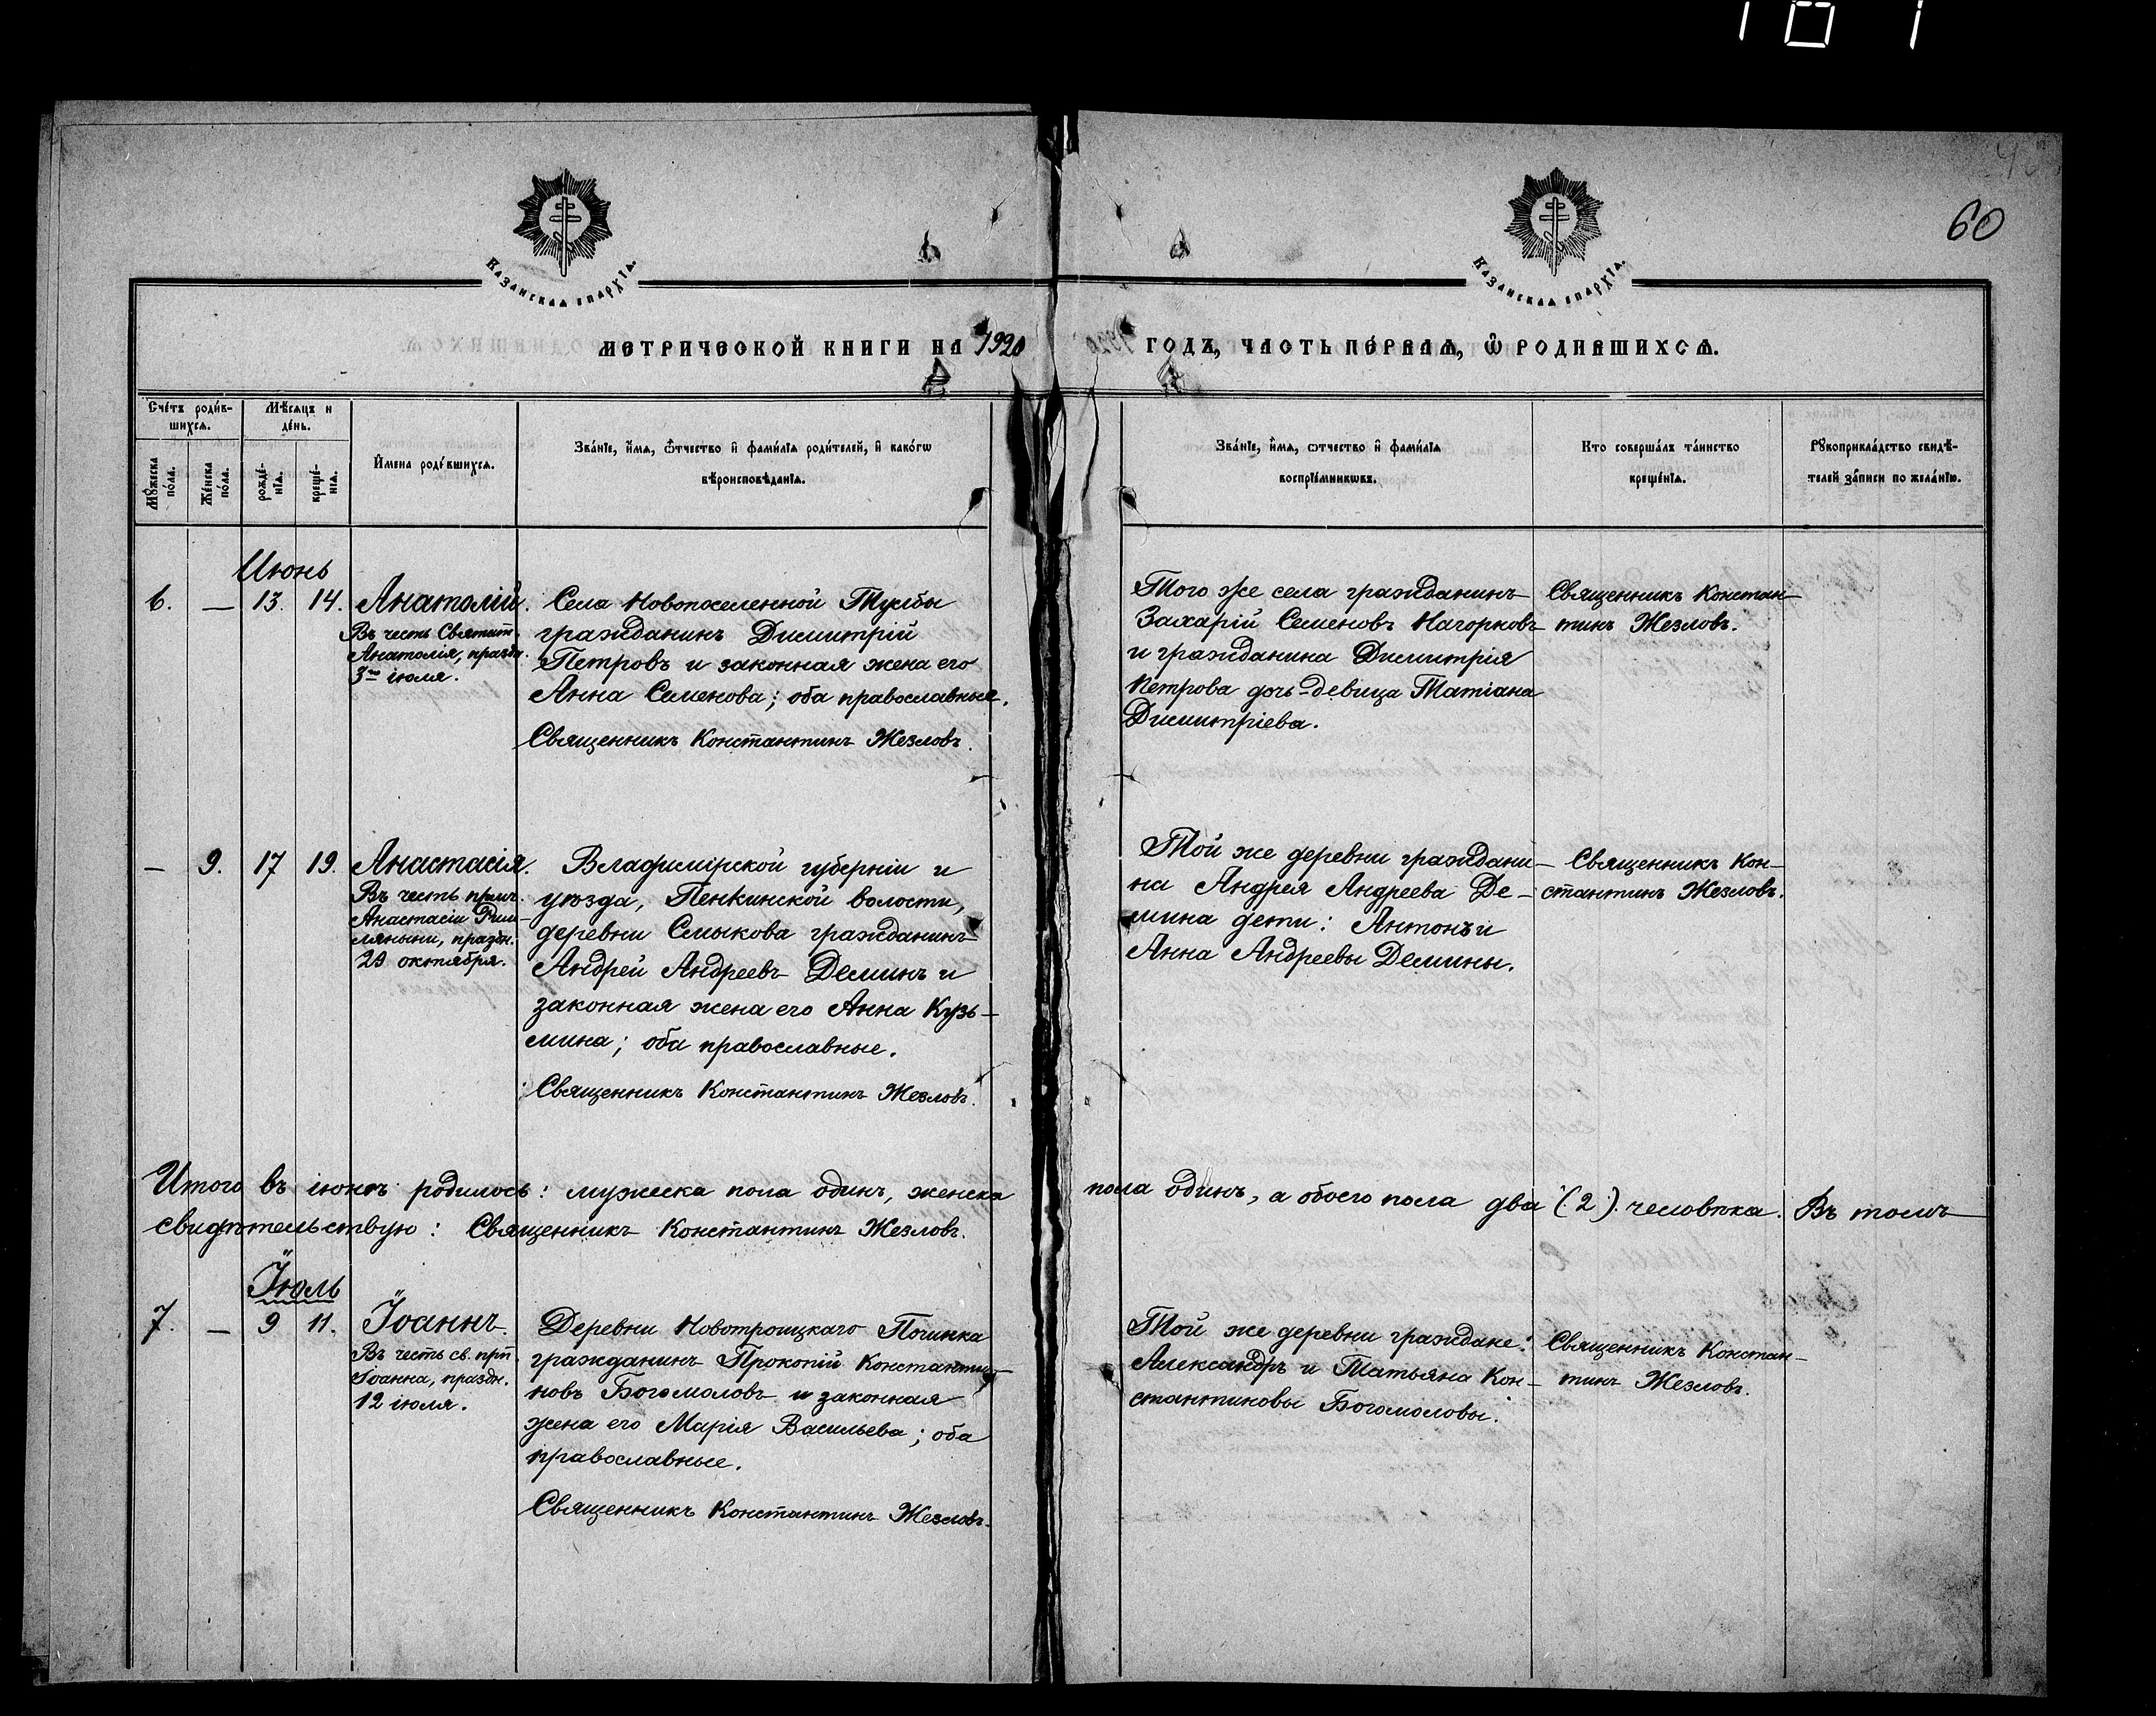 101
60
Казанская епархїѧ.
Казанская епархїѧ.
МЕТРИЧЕСКОЙ КНИГИ НА 1920
ГОДЪ, ЧАСТЬ ПЕ́РВАѦ, Ѿ РОДИВШИХСѦ.
Сче́тъ роди́в-
шихсѧ.
Мѣ́сѧцъ и
де́нь.
Мꙋ́жеска
по́ла.
Же́нска
по́ла.
рожде́-
нїѧ.
креще́-
нїѧ.
И҆мена роди́вшихсѧ.
Зва́нїе, и҆́мѧ, ѻ҆́тчество и҆ фами́лїѧ роди́телей, и҆ како́гѡ
вѣроисповѣ́данїѧ.
Зва́нїе, и҆́мѧ, ѻтчество и҆ фами́лїѧ
воспрїе́мникѡвъ.
Кто соверша́лъ та́инство
креще́нїѧ.
Рꙋкоприкла́дство свидѣ́-
телей за́писи по жела́нїю.
Июнь
6. — 13. 14. Анатолій.
Въ честь Святит.
Анатолія, праздн.
3го іюля.
Села Новопоселенной Тулбы
гражданинъ Димитрій
Петровъ и законная жена его
Анна Семенова; оба православные.
Священникъ Константинъ Жезловъ.
Того же села гражданинъ
Захарій Семеновъ Нагорновъ
и гражданина Димитрія
Петрова дочь-девица Татіана
Димитріева.
Священникъ Констан-
тинъ Жезловъ.
— 9. 17 19. Анастасія.
Въ честь прмч.
Анастасіи Рим-
ляныни, праздн.
29 октября.
Владимірской губерніи и
уѣзда, Пенкинской волости,
деревни Смыкова гражданинъ
Андрей Андреевъ Деминъ и
законная жена его Анна Кузь-
мина; оба православные.
Священникъ Константинъ Жезловъ.
Той же деревни граждани-
на Андрея Андреева Де-
мина дети: Антонъ и
Анна Андреевы Демины.
Священникъ Кон-
стантинъ Жезловъ.
Итого въ іюнѣ родилось: мужеска пола одинъ, женска пола одинъ, а обоего пола два (2). человѣка. Въ томъ
свидѣтельствую: Священникъ Константинъ Жезловъ.
Іюль
7. — 9 11. Іоаннъ.
Въ честь св. прп.
Іоанна, праздн.
12 іюля.
Деревни Новотроицкаго Починка
гражданинъ Прокопій Константи-
новъ Богомоловъ и законная
жена его Марія Васильева; оба
православные.
Священникъ Константинъ Жезловъ.
Той же деревни граждане:
Александръ и Татьяна Кон-
стантиновы Богомоловы.
Священникъ Констан-
тинъ Жезловъ.